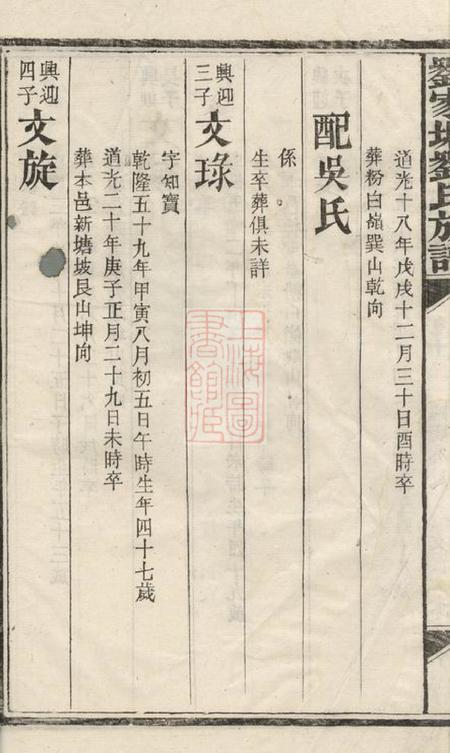 劉家塘劉氏族譜
道光十八年戊戌十二月三十日酉時卒
葬粉白嶺巽山乾向
配吳氏
係
生卒葬俱未詳
興迎三子文琭
字知寶
乾隆五十九年甲寅八月初五日午時生年四十七歲
道光二十年庚子正月二十九日未時卒
葬本邑新塘坡艮山坤向
興迎四子文旋
上海圖書館藏